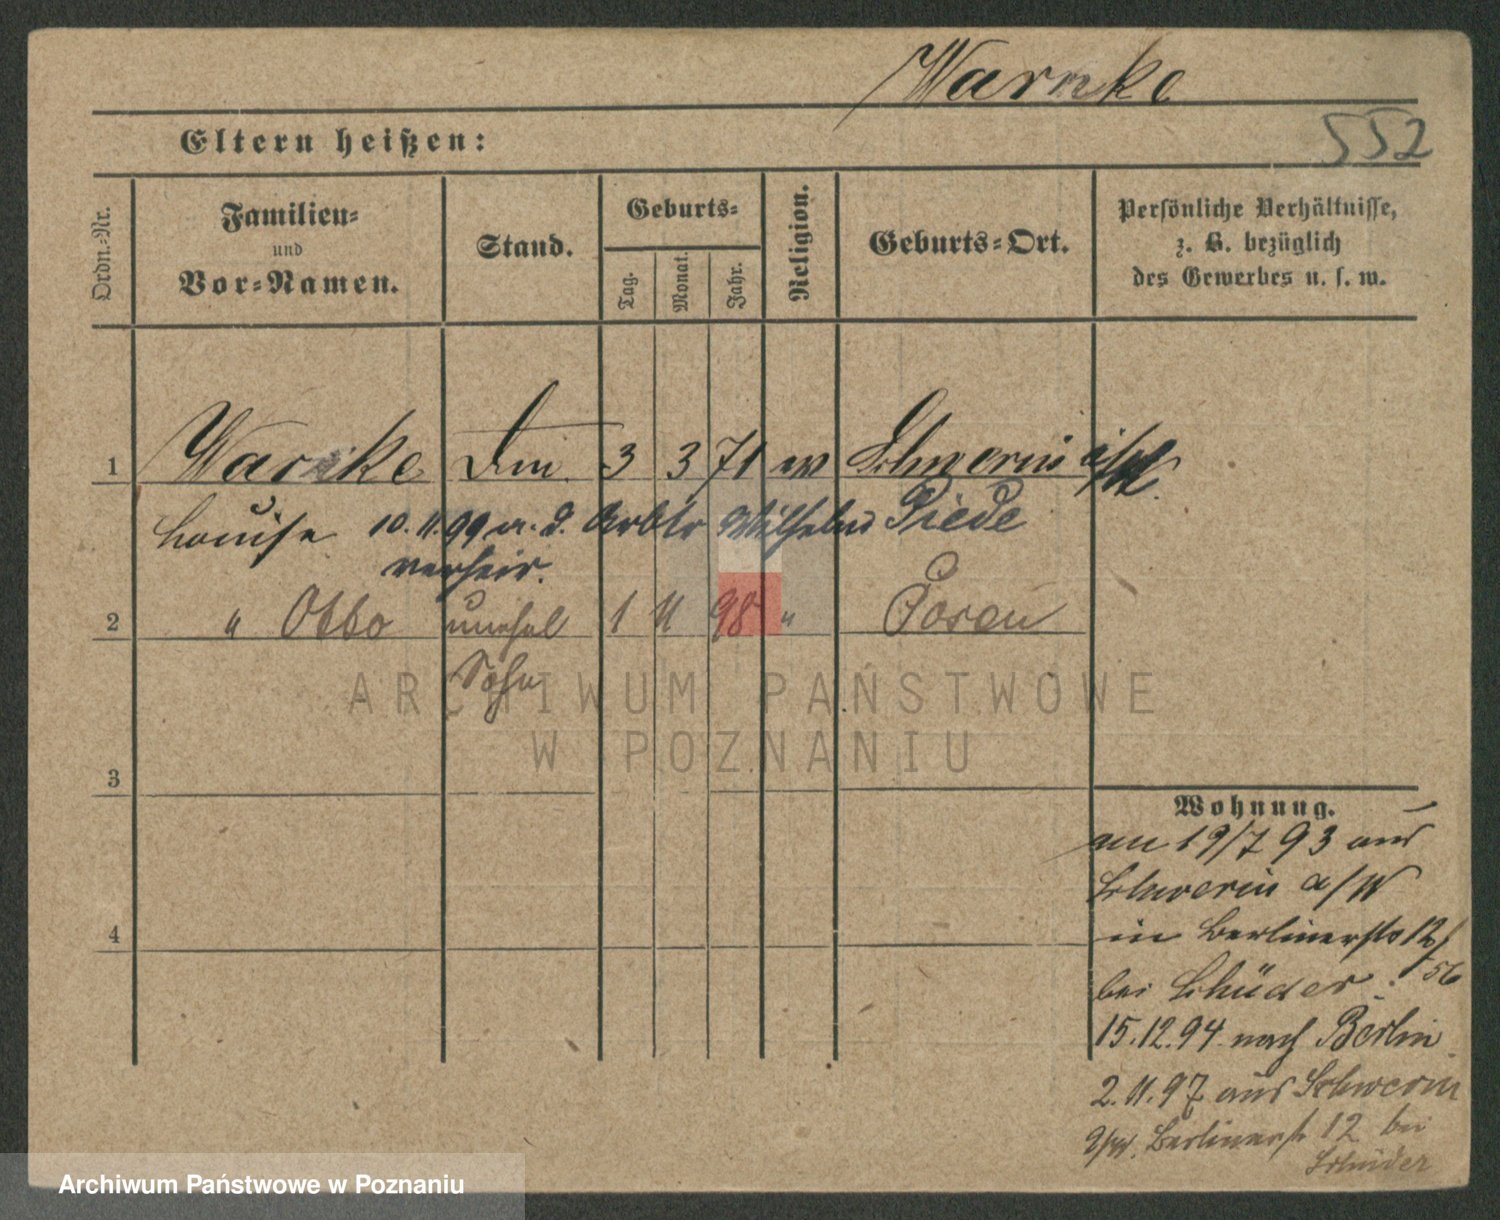 Warnke
552
Eltern heißen:
Ordn.-Nr.
Familien-
und
Vor-Namen.
Stand.
Geburts-
Tag.
Monat.
Jahr.
Religion.
Geburts-Ort.
Persönliche Verhältnisse,
z. B. bezüglich
des Gewerbes u. s. w.
1 Warnke 3 3 71 ev Schwerin a/W.
Louise 10.11.99 m. d. Arbtr Wilhelm Riede
verheir.
2 " Otto unehel 1 11 98 " Posen
Sohn
ARCHIWUM PAŃSTWOWE
W POZNANIU
3
Wohnung.
am 19/7 93 aus
Schwerin a/W
in Berlinerstr 12/56
bei Schüder
15.12.94 nach Berlin
2.11.97 aus Schwerin
a/W. Berlinerstr 12 bei
Schüder
4
Archiwum Państwowe w Poznaniu